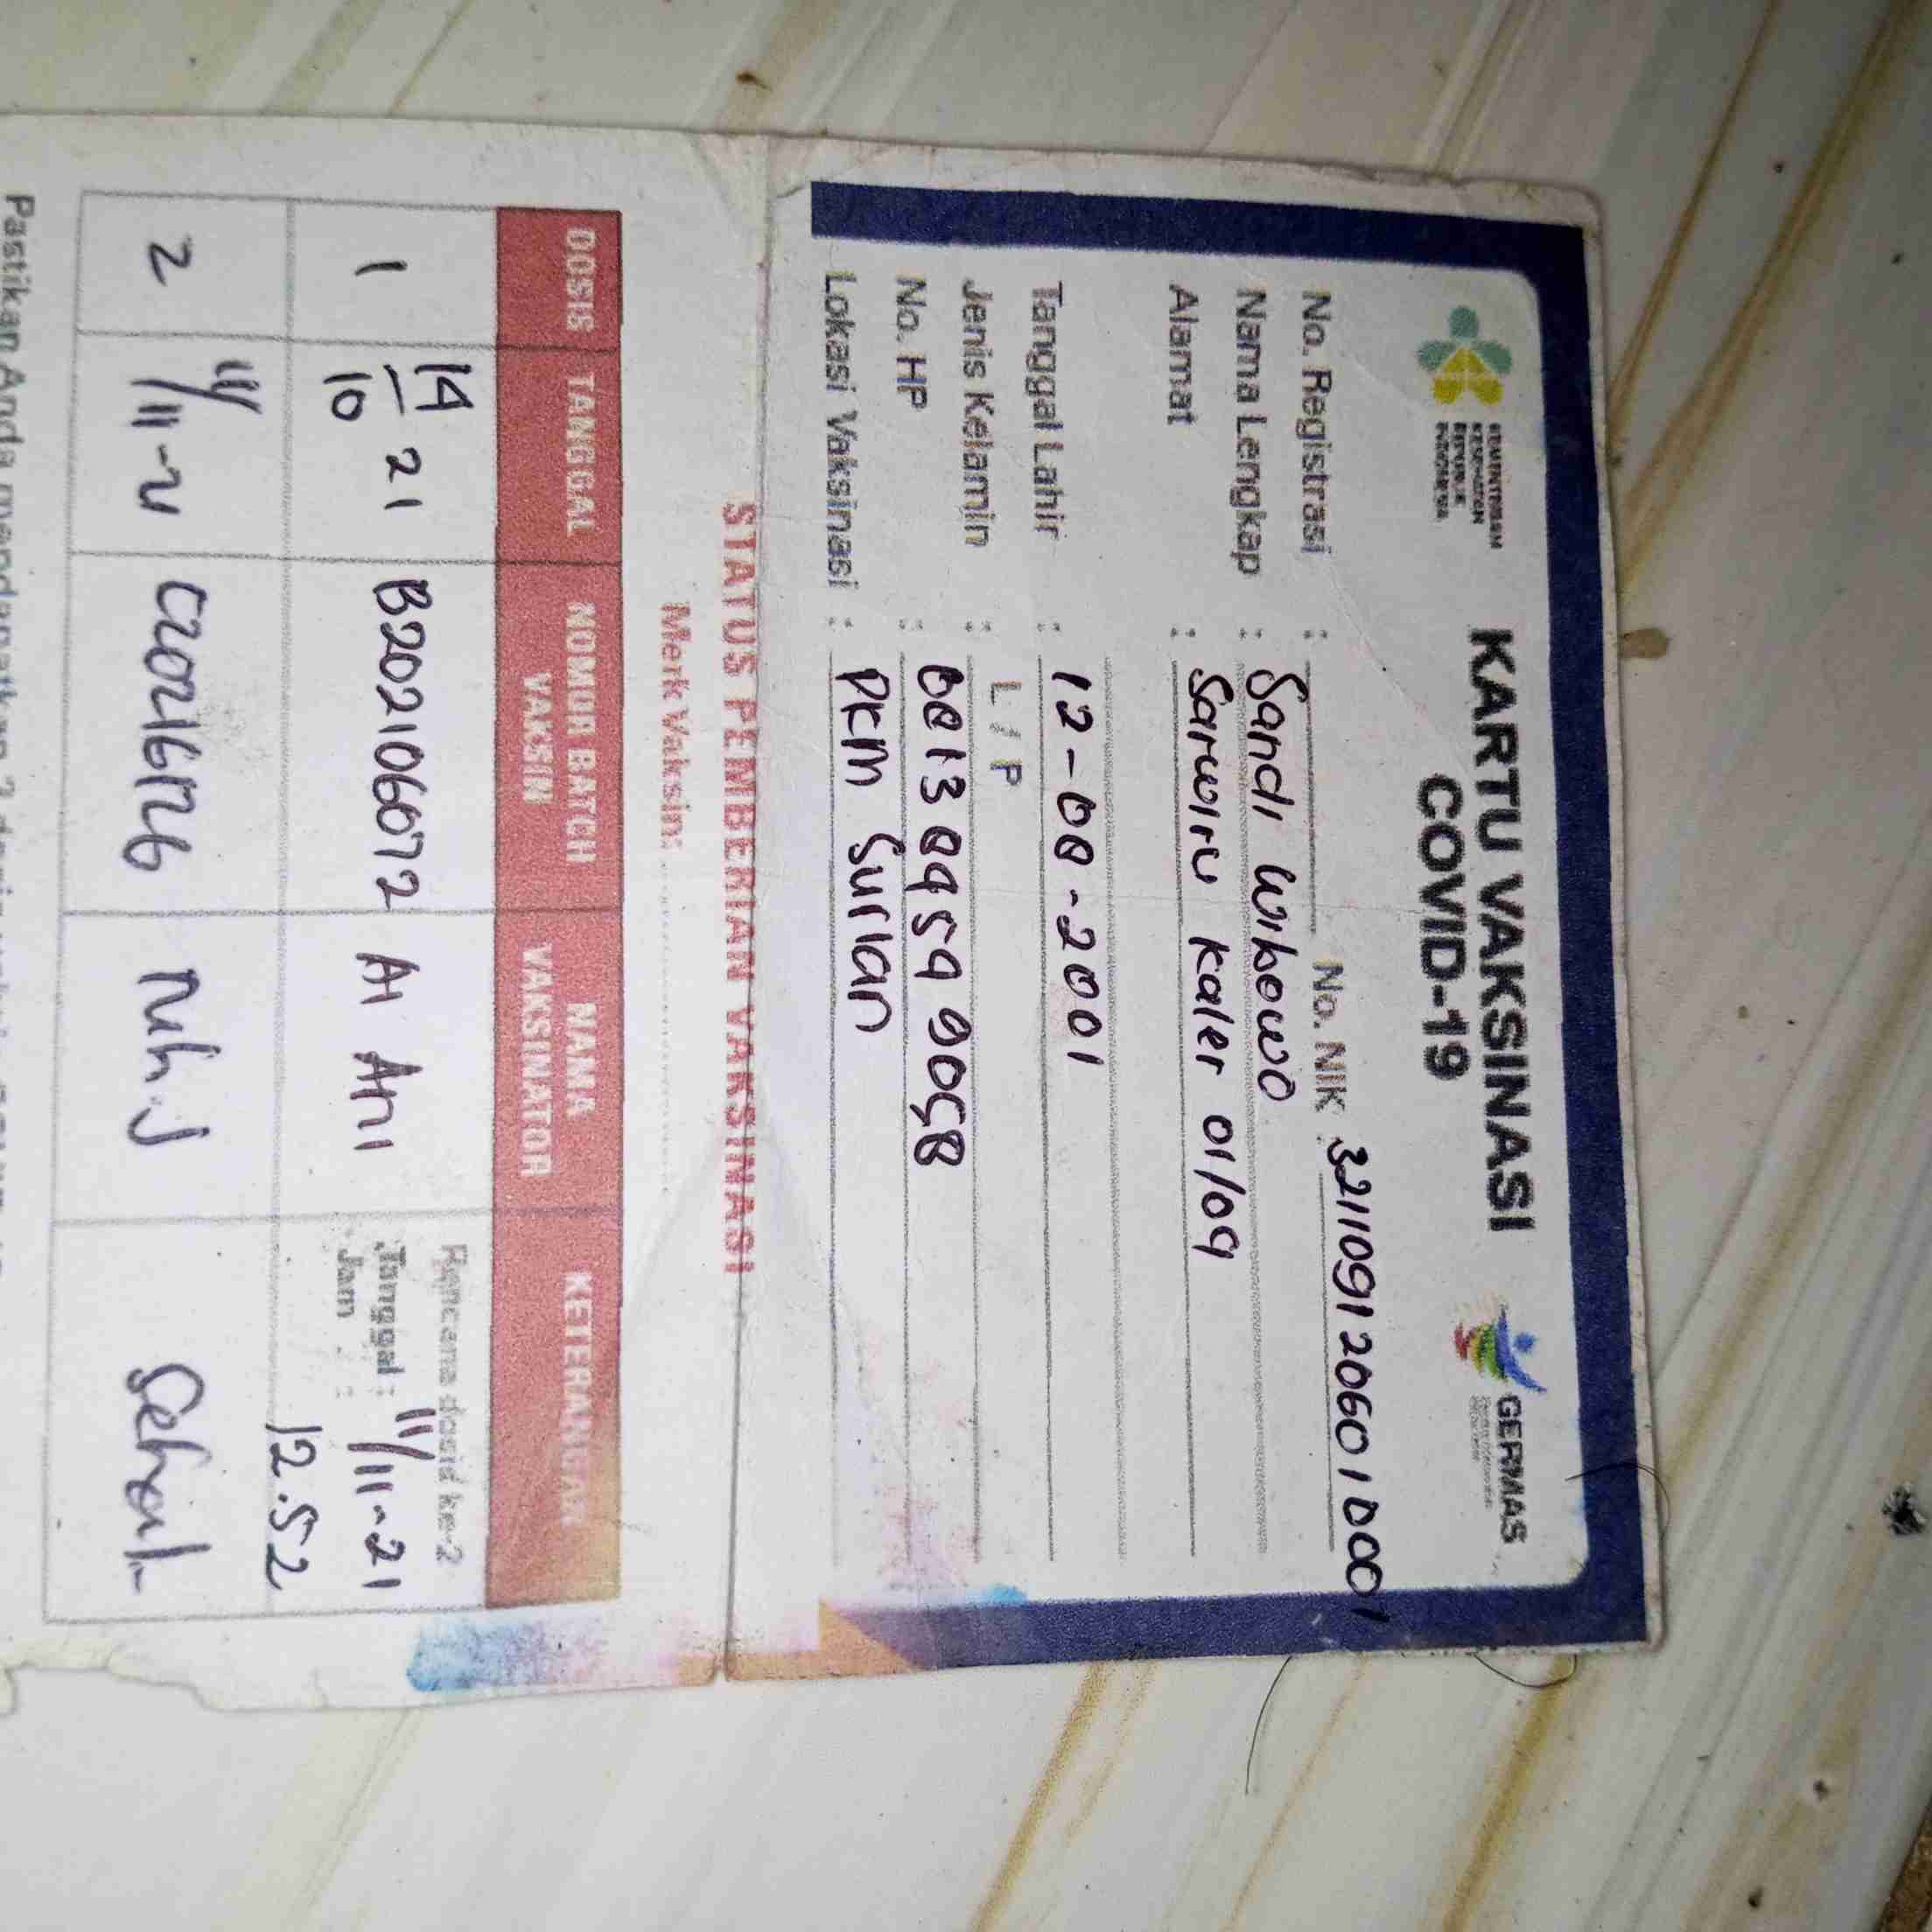 KEMENTERIAN
KESEHATAN
REPUBLIK
INDONESIA
KARTU VAKSINASI
COVID-19
GERMAS
No. Registrasi : No. NIK : 3211091206010001
Nama Lengkap : Sandi Wibowo
Alamat : Sarwiru Kaler 01/09
Tanggal Lahir : 12-08-2001
Jenis Kelamin : L / P
No. HP : 081389599058
Lokasi Vaksinasi : PKM Surian
STATUS PEMBERIAN VAKSINASI
Merk Vaksin:
DOSIS TANGGAL NOMOR BATCH VAKSIN NAMA VAKSINATOR KETERANGAN
1 14/10 21 B202106072 Ai Ani Rencana dosis ke-2
Tanggal : 11/11-21
Jam : 12.52
2 11/11-21 Sehat
Pastikan Anda mendapatkan 2 dosis